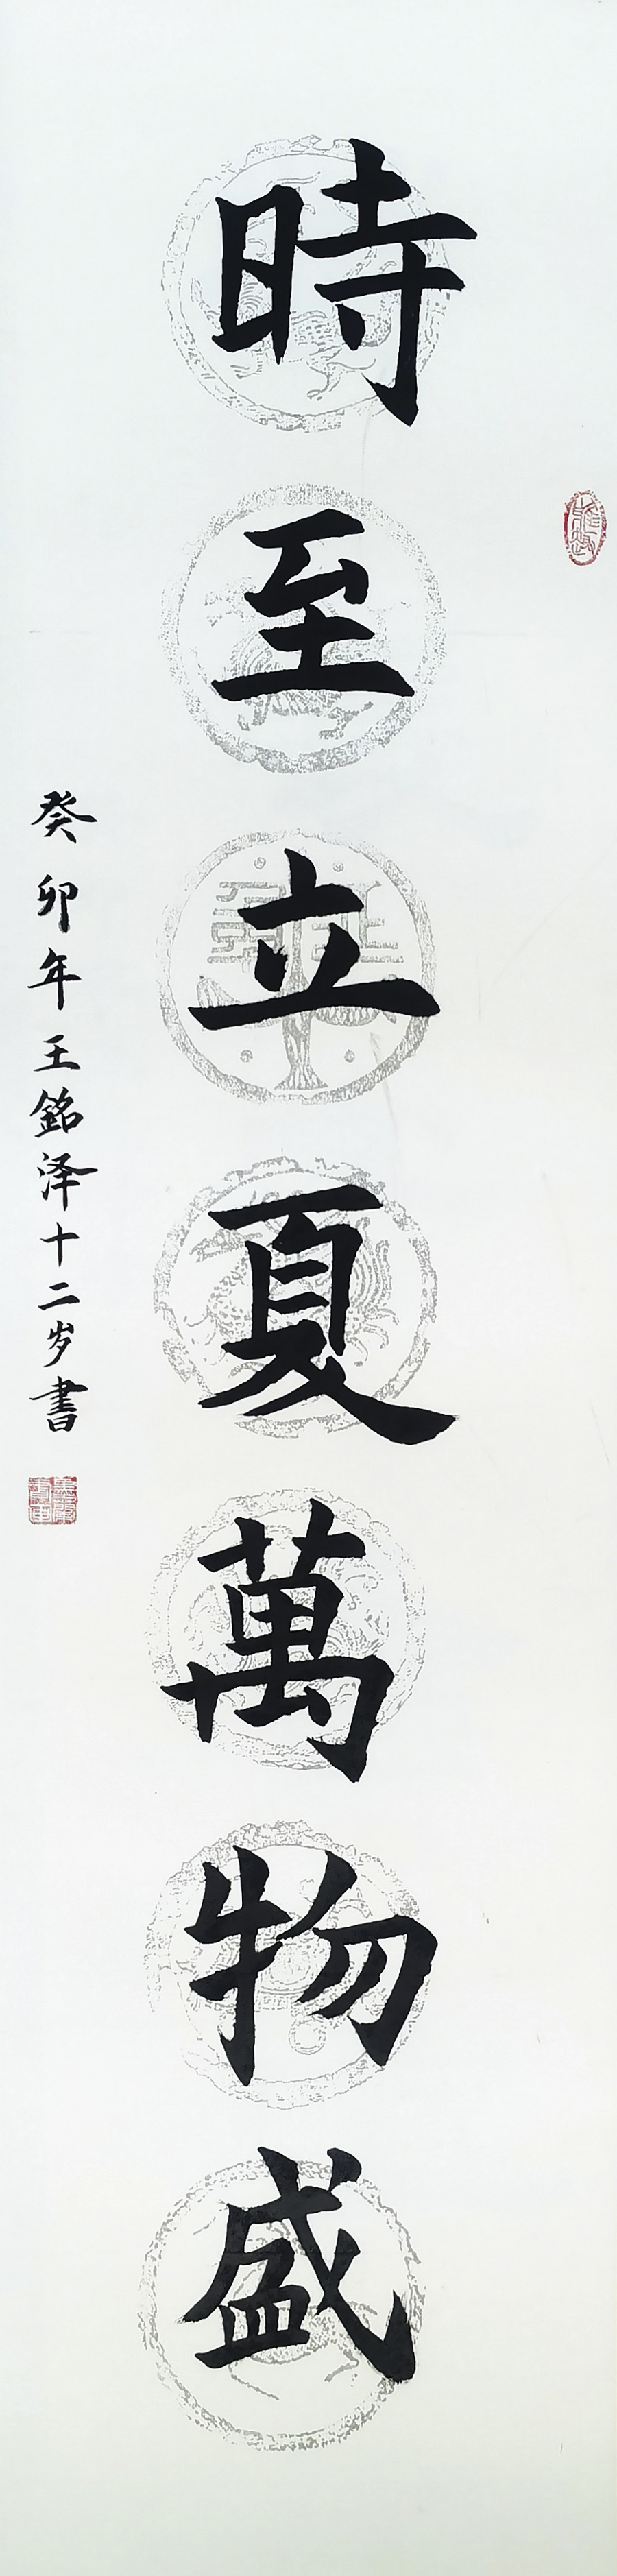 時至立夏萬物盛
癸卯年王銘泽十二岁書